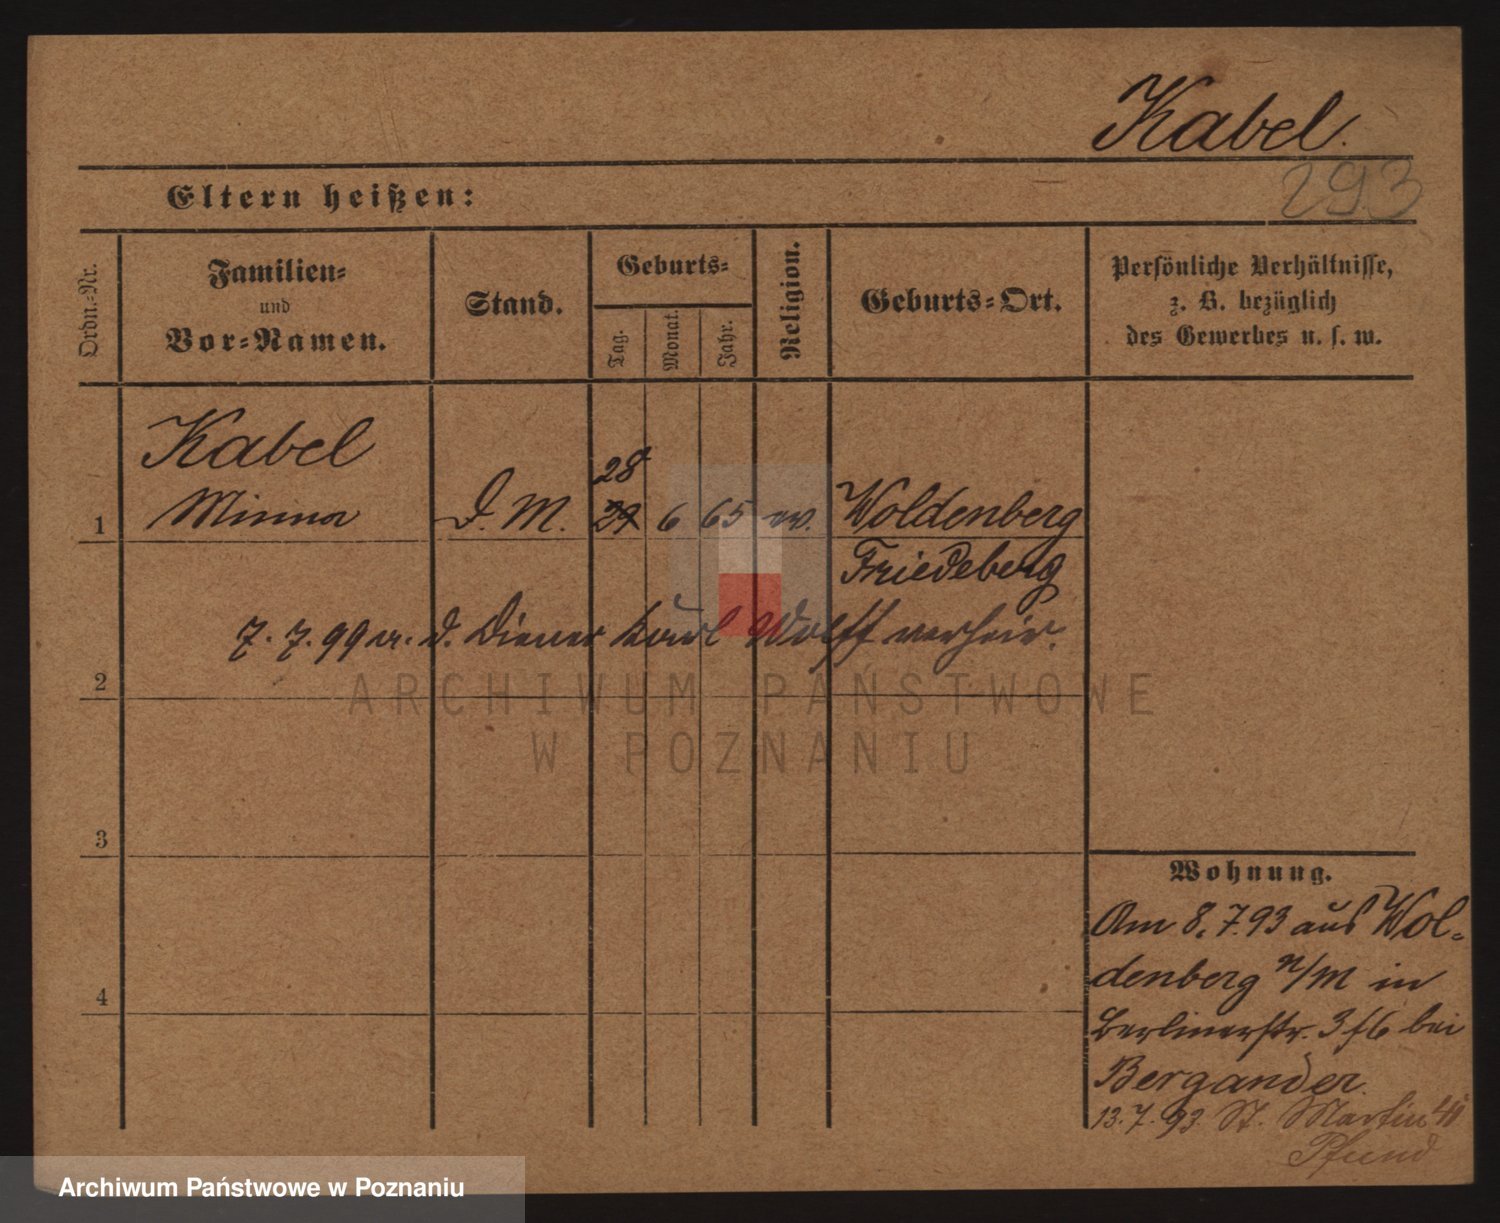 Kabel.
293
Eltern heißen:
Ordn.-Nr.
Familien-
und
Vor-Namen.
Stand.
Geburts-
Tag.
Monat.
Jahr.
Religion.
Geburts-Ort.
Persönliche Verhältnisse,
z. B. bezüglich
des Gewerbes u. s. w.
Kabel
28
1 Minna D. M. 29 6 65 ev. Woldenberg
Friedeberg
7. 7. 99 m. d. Diener Karl Wolff verheir.
2
ARCHIWUM PAŃSTWOWE
W POZNANIU
3
Wohnung.
Am 8. 7. 93 aus Wol-
denberg n/M in
4
Berlinerstr. 3 bei
Bergander.
13. 7. 93. St. Martin
Pfund
Archiwum Państwowe w Poznaniu